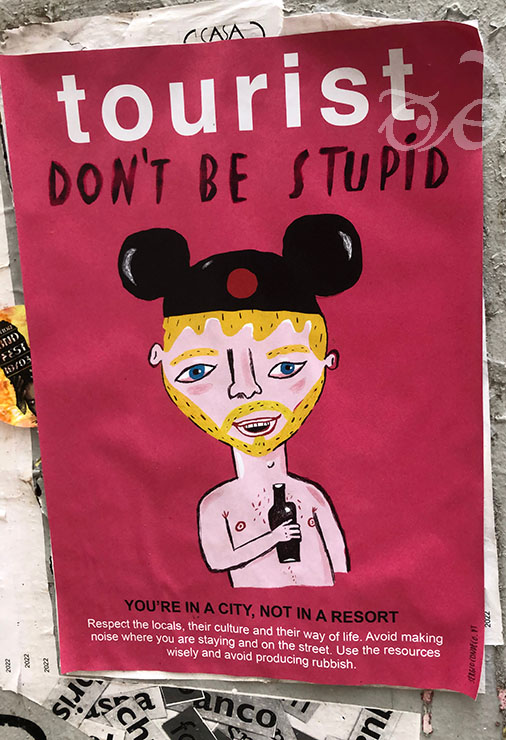 CASA
tourist
DON'T BE STUPID
YOU'RE IN A CITY, NOT IN A RESORT
Respect the locals, their culture and their way of life. Avoid making
noise where you are staying and on the street. Use the resources
wisely and avoid producing rubbish.
2022
2022
2022
2022
anco